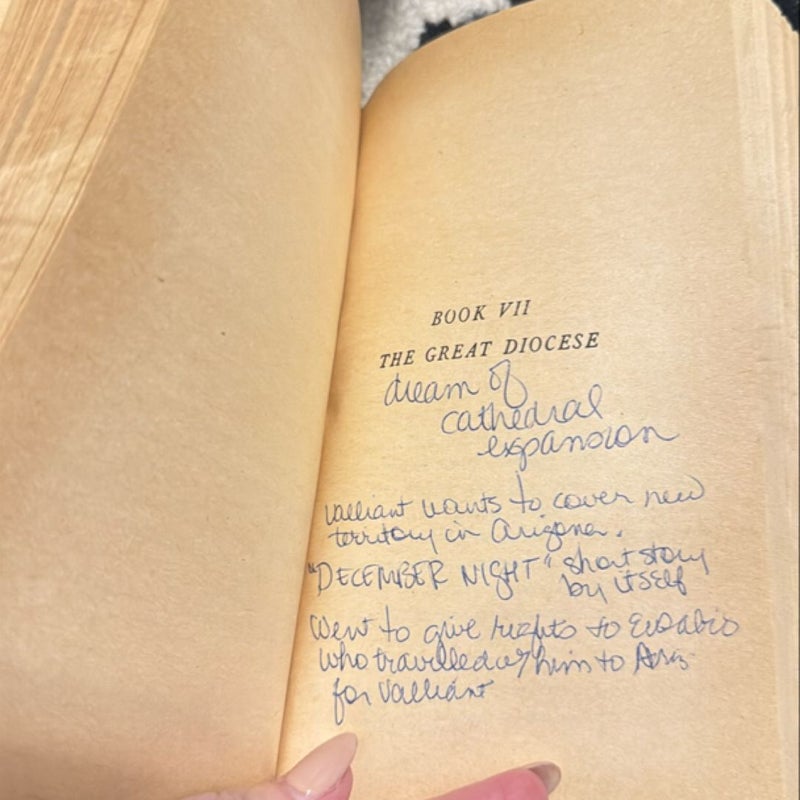 BOOK VII
THE GREAT DIOCESE
dream of
cathedral
expansion
Valliant wants to cover new
territory in Arizona.
"DECEMBER NIGHT" short story
by itself
Went to give rights to Eusabio
who travelled w/ him to Ariz
for Valliant